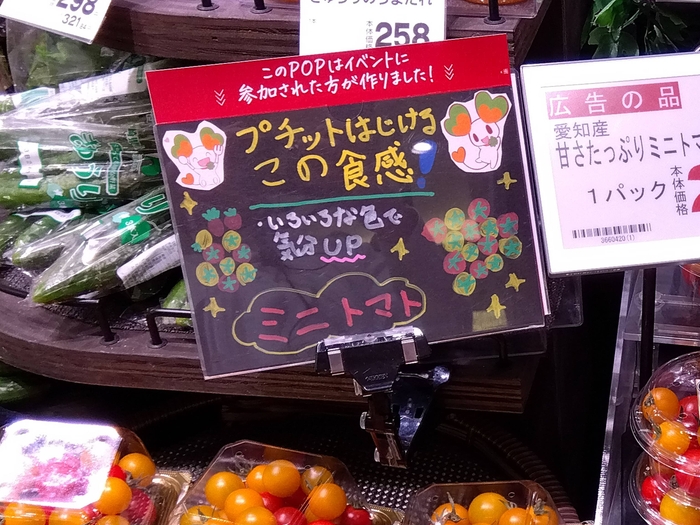 298
321
本体価格 258
このPOPはイベントに
参加された方が作りました!
プチッとはじける
この食感!
・いろいろな色で
気分UP
ミニトマト
きゅうり
広告の品
愛知産
甘さたっぷりミニトマ
1パック
本体価格
3660420(1)